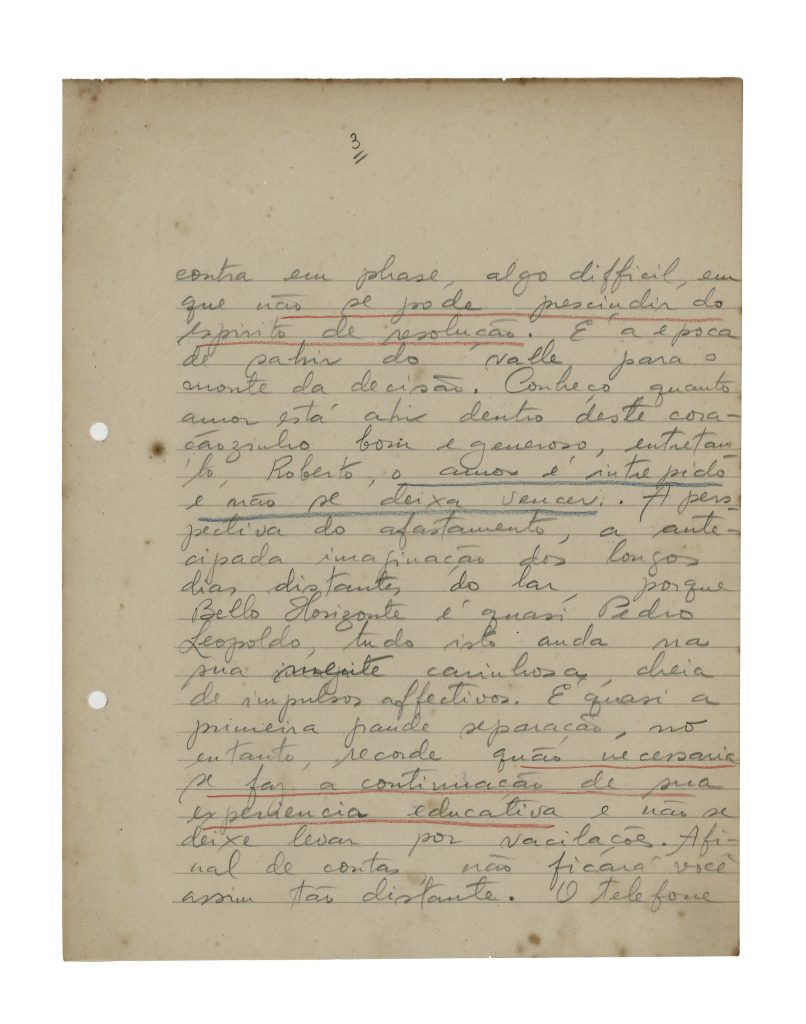 3
contra em phase, algo difficil, em
que não se pode prescindir do
espirito de resolução. E' a epoca
de sahir do valle para o
monte da decisão. Conheço quanto
amor está ahi dentro deste cora-
çãozinho bom e generoso, entretan-
to, Roberto, o amor é intrepido
e não se deixa vencer. A pers-
pectiva do afastamento, a ante-
cipada imaginação dos longos
dias distantes do lar, porque
Bello Horizonte é quasi Pedro
Leopoldo, tudo isto anda na
sua mente carinhosa, cheia
de impulsos affectivos. E' quasi a
primeira grande separação, no
entanto, recorde quão necessaria
se faz a continuação de sua
experiencia educativa e não se
deixe levar por vacilações. Afi-
nal de contas não ficará você
assim tão distante. O telefone